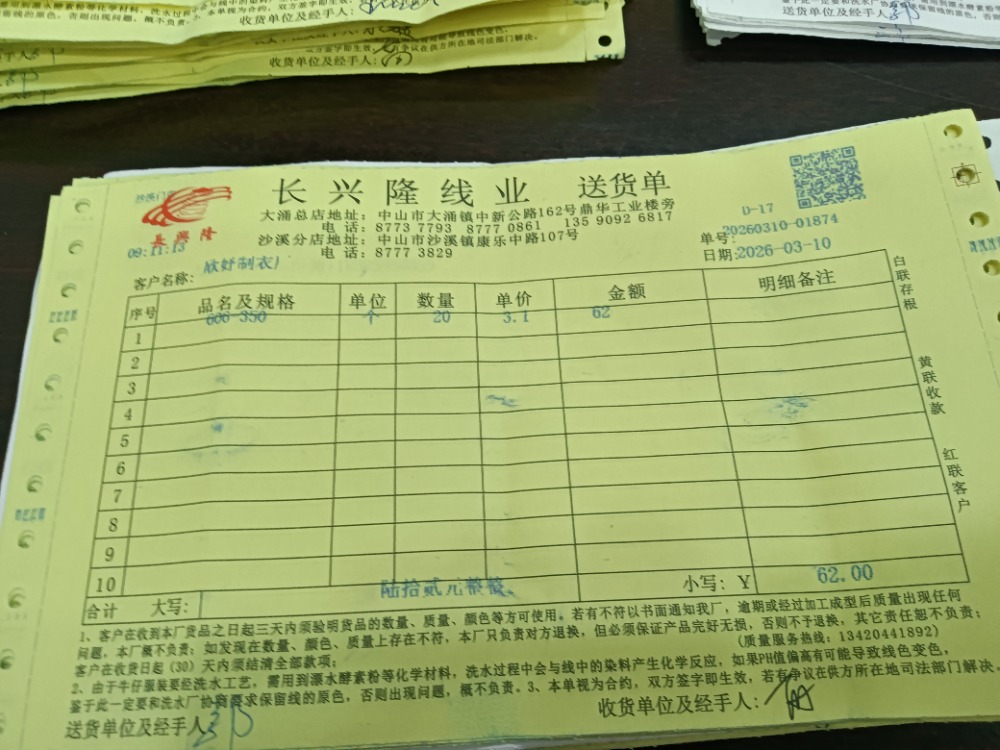 收货单位及经手人:
双方签字即生效
争议在供方所在地司法部门解决。
收货单位及经手人:
送货单位及经手人:
沙溪门
長興隆
09:11:13
长兴隆线业 送货单
大涌总店地址：中山市大涌镇中新公路162号鼎华工业楼旁
电 话：8773 7793 8777 0861 135 9092 6817
沙溪分店地址：中山市沙溪镇康乐中路107号
电 话：8777 3829
D-17
单号:20260310-01874
日期:2026-03-10
客户名称: 欣妤制衣厂
序号 品名及规格 单位 数量 单价 金额 明细备注
606 350 个 20 3.1 62
1
2
3
4
5
6
7
8
9
10
合计 大写: 陆拾贰元整整 小写：￥ 62.00
白联存根
黄联收款
红联客户
1、客户在收到本厂货品之日起三天内须验明货品的数量、质量、颜色等方可使用。若有不符以书面通知我厂，逾期或经过加工成型后质量出现任何
问题，本厂概不负责；如发现在数量、颜色、质量上存在不符，本厂只负责对方退换，但必须保证产品完好无损，否则不予退换，其它责任恕不负责；
客户在收货日起（30）天内须结清全部款项； （质量服务热线：13420441892）
2、由于牛仔服装要经洗水工艺，需用到漂水酵素粉等化学材料，洗水过程中会与线中的染料产生化学反应，如果PH值偏高有可能导致线色变色，
鉴于此一定要和洗水厂协商要求保留线的原色，否则出现问题，概不负责。3、本单视为合约，双方签字即生效，若有争议在供方所在地司法部门解决。
送货单位及经手人: 收货单位及经手人: